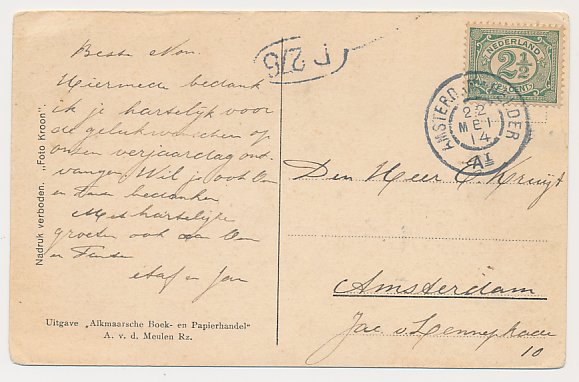 Beste Non.
Hiermede bedank
ik je hartelijk voor
de gelukwenschen op
onzen verjaardag ont-
vangen. Wil je ook Oom
en Tante bedanken
Met hartelijke
groeten ook aan Oom
en Tante
en Jan
Nadruk verboden. „Foto Kroon”.
Uitgave „Alkmaarsche Boek- en Papierhandel”
A. v. d. Meulen Rz.
r 275
NEDERLAND
2½
CENT
AMSTERD. HELDER
22
MEI
14
A
Den Heer C Kruijt
Amsterdam
Jac v. Lennepkade
10